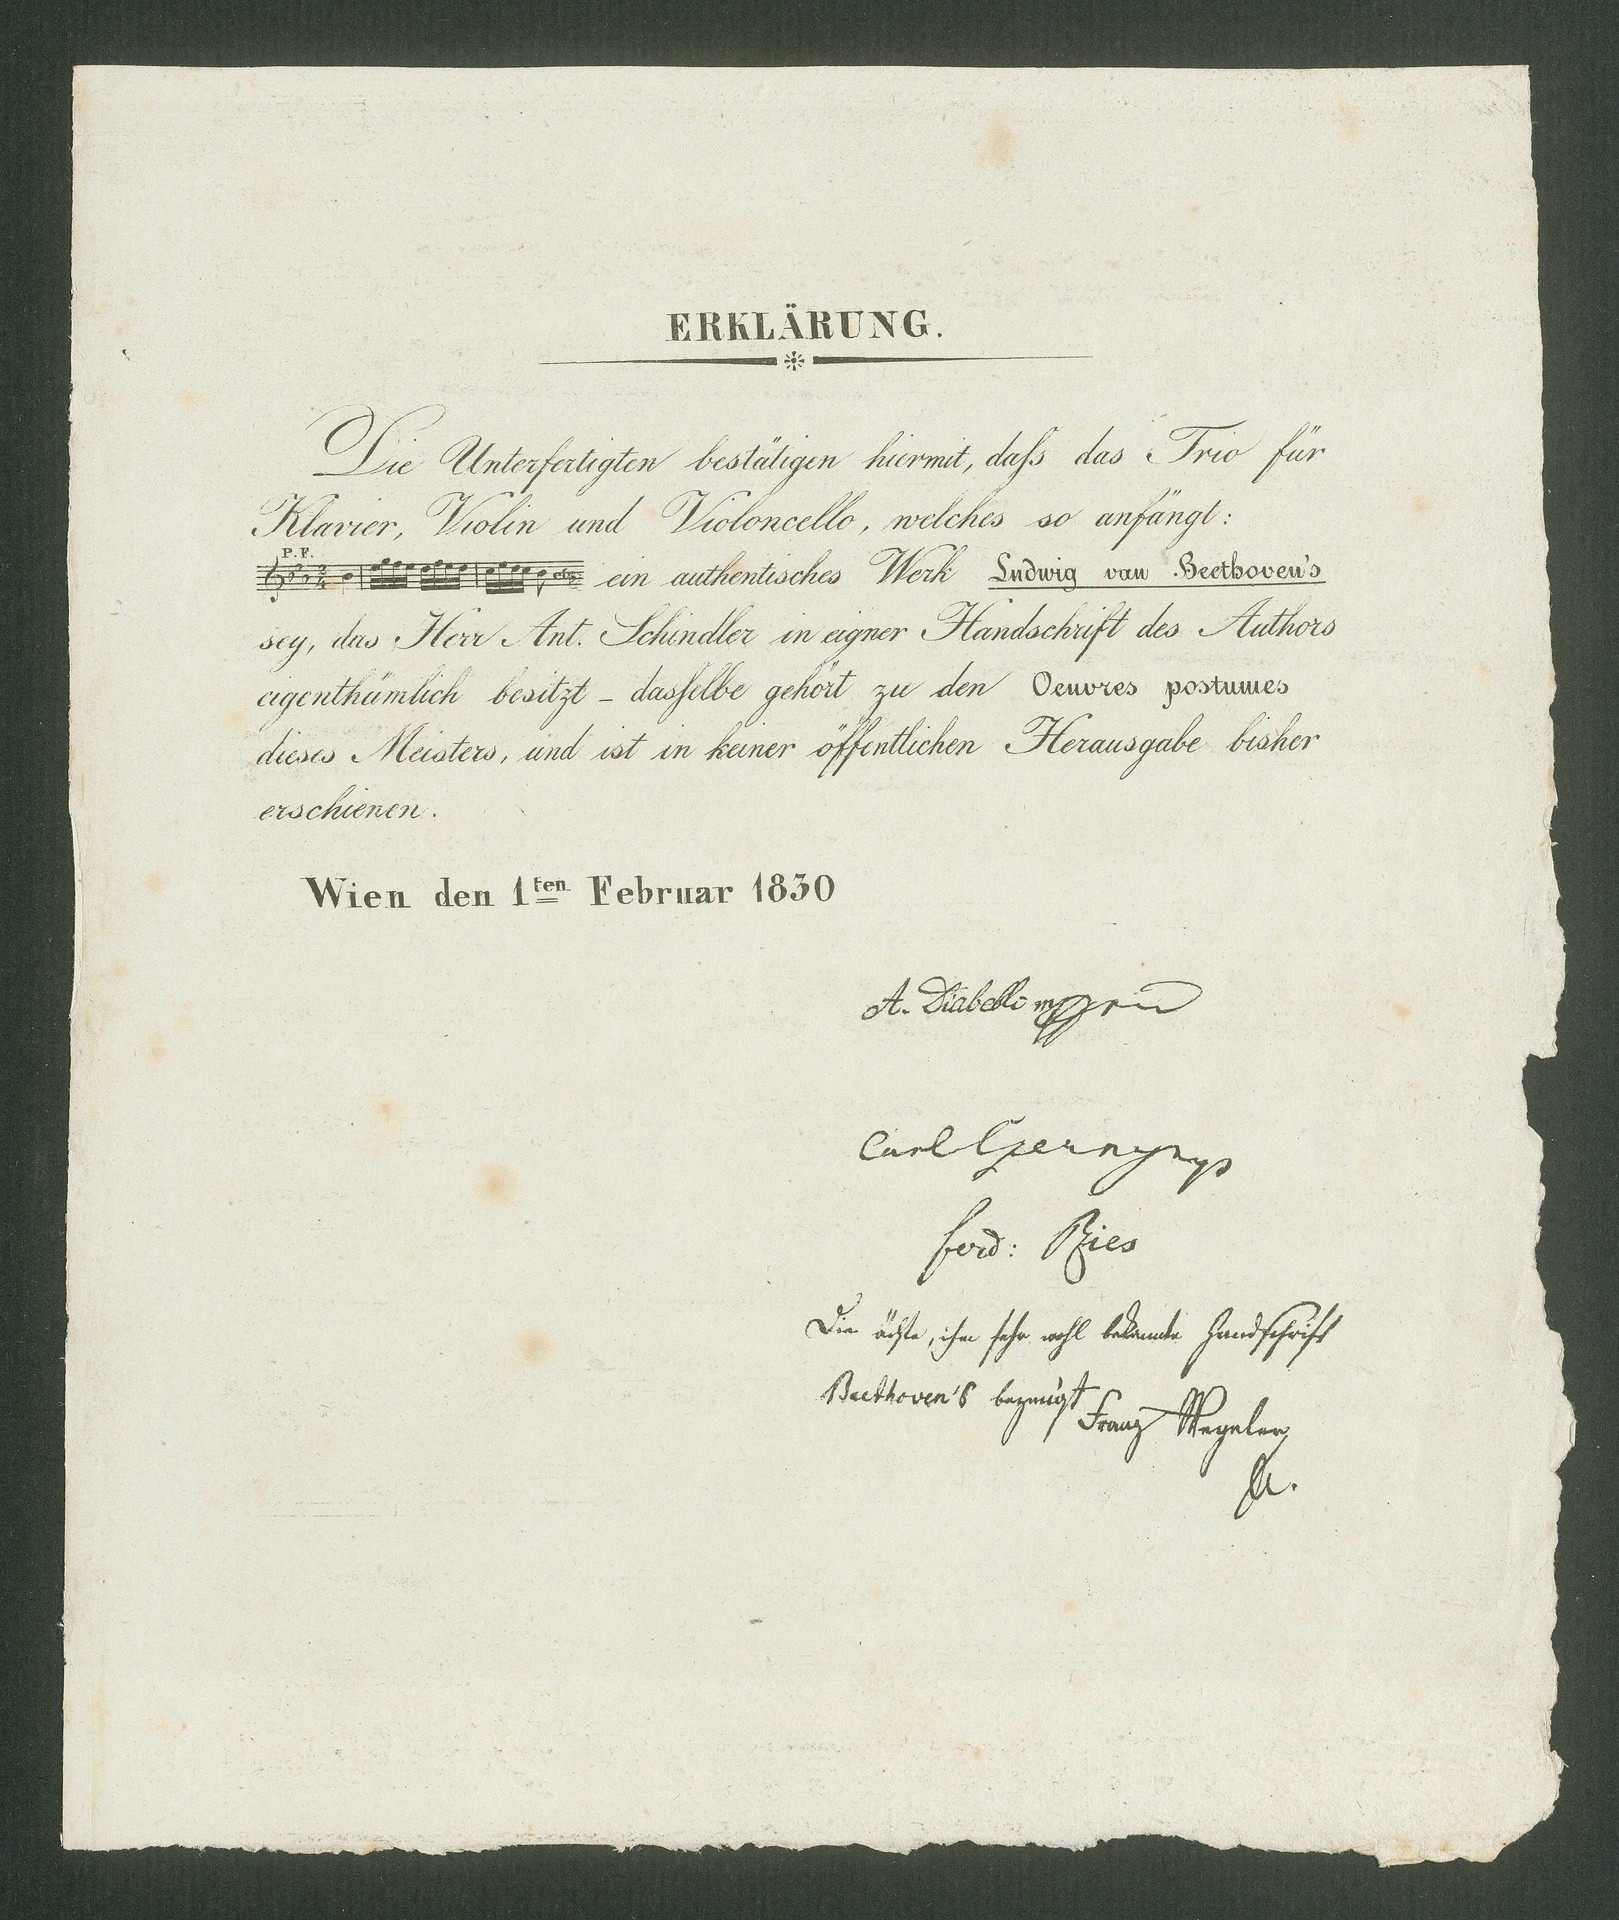 ERKLÄRUNG.
Die Unterfertigten bestätigen hiermit, daſs das Trio für
Klavier, Violin und Violoncello, welches so anfängt:
P.F.
ein authentisches Werk Ludwig van Beethoven's
sey, das Herr Ant. Schindler in eigner Handschrift des Authors
eigenthümlich besitzt – dasſelbe gehört zu den Oeuvres postumes
dieses Meisters, und ist in keiner öffentlichen Herausgabe bisher
erschienen.
Wien den 1ten Februar 1830
A. Diabelli
Carl Czerny
ferd: Ries
Die ächte, ihm sehr wohl bekannte Handschrift
Beethoven's bezeugt
Franz Wegeler